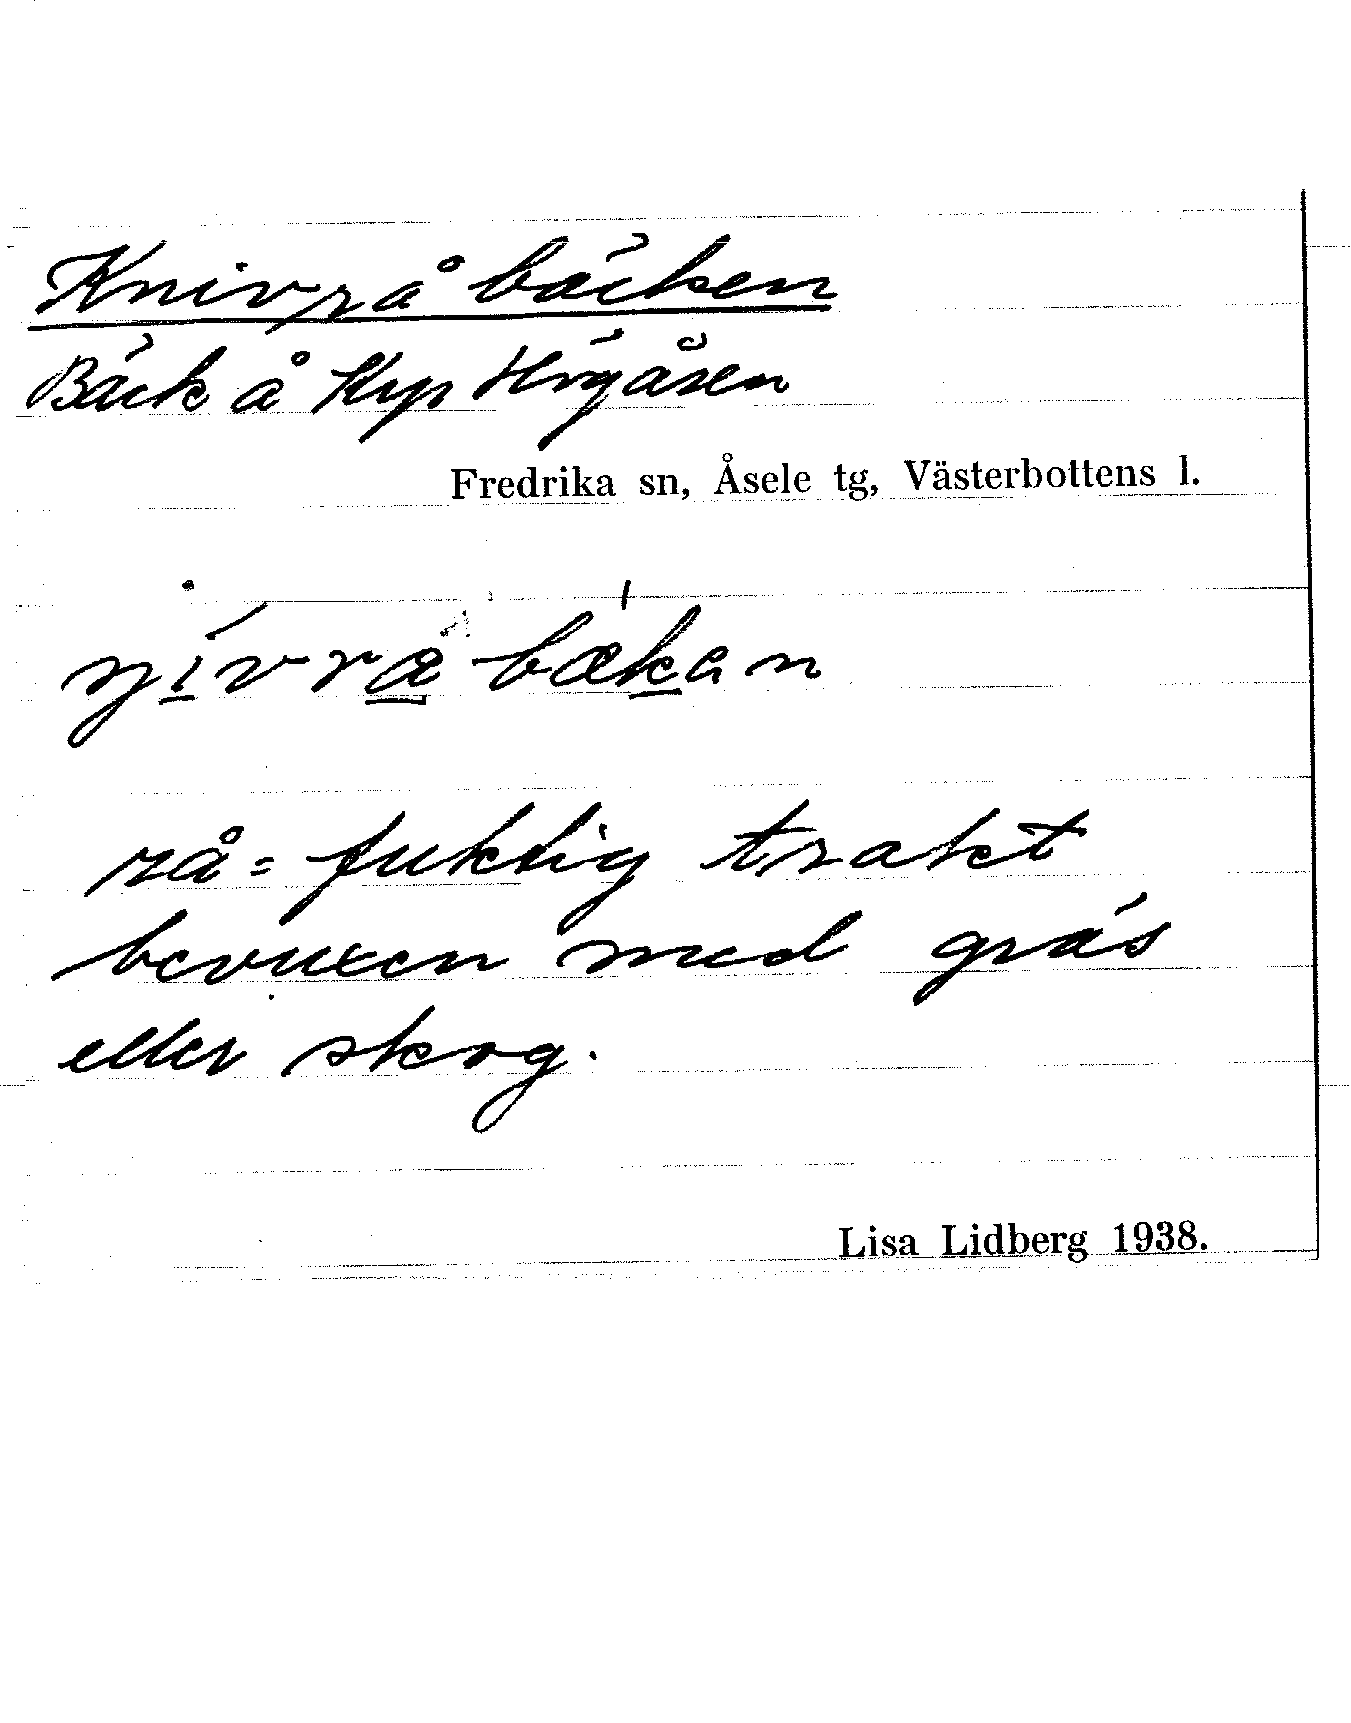 Knivråbäcken
Bäck å Krp Högåsen
Fredrika sn, Åsele tg, Västerbottens l.
rå = fuktig trakt
bevuxen med gräs
eller skog.
Lisa Lidberg 1938.